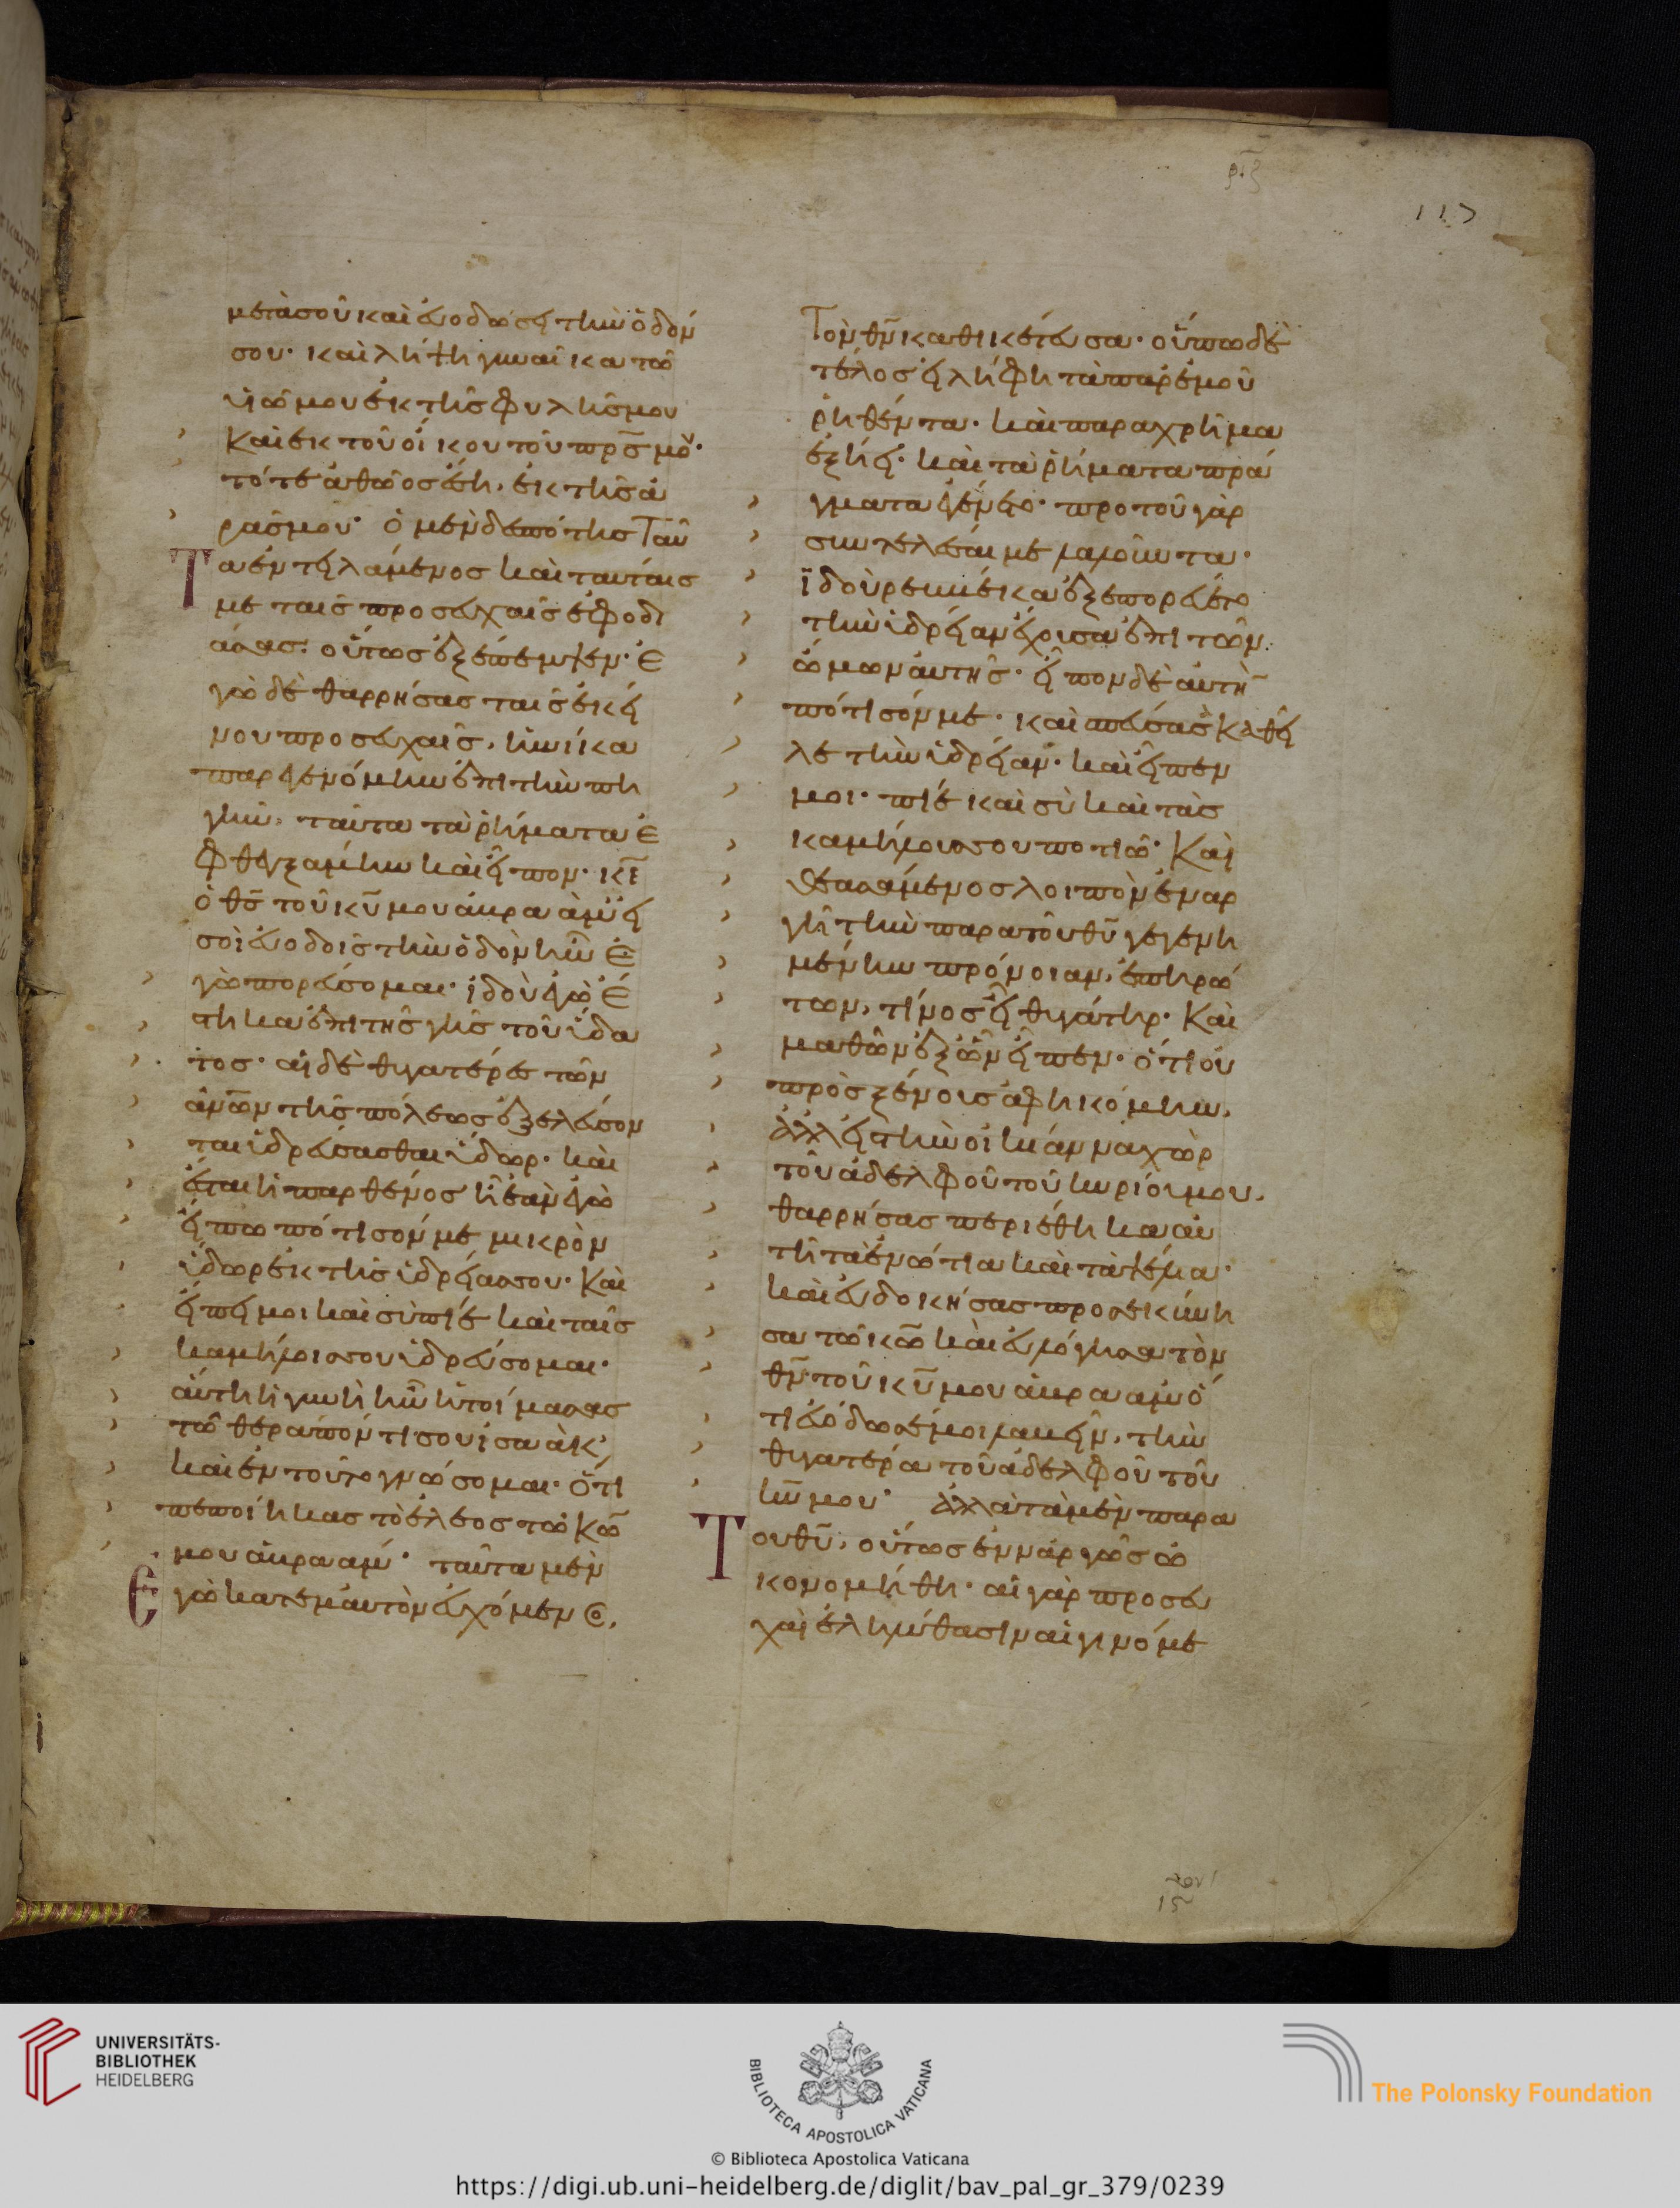 ριζ
117
μετὰ σοῦ καὶ εὐοδώσει τὴν ὁδόν
σου· καὶ λήψη γυναῖκα τῶ
υἱῶ μου ἐκ τῆς φυλῆς μου
καὶ ἐκ τοῦ οἴκου τοῦ πρ̅ς μου·
τότε ἀθῶος ἔση, ἐκ τῆς ἀ
ρᾶς μου· ὁ μὲν δεσπότης ταῦ
τα ἐντειλάμενος καὶ ταύταις
με ταῖς προσευχαῖς ἐφοδι
άσας· οὕτως ἐξέπεμψεν· ἐ
γὼ δὲ θαρρήσας ταῖς ἐκεί
νου προσευχαῖς, ἡνίκα
παρεγενόμην ἐπὶ τὴν πη
γὴν, ταῦτα τὰ ῥήματα ἐ
φθεγξάμην καὶ εἶπον· κ̅ε̅
ὁ θ̅ς̅ τοῦ κ̅υ̅ μου ἀβραὰμ εἰ
σοὶ εὐοδοῖς τὴν ὁδὸν ἣν ἐ
γὼ πορεύσομαι· ἰδοὺ ἐγὼ ἕ
στηκα ἐπὶ τῆς γῆς τοῦ ὕδα
τος· αἱ δὲ θυγατέρες τῶν
ἀν̅ω̅ν τῆς πόλεως ἐξελεύσον
ται ὑδρεύσασθαι ὕδωρ· καὶ
ἔσται ἡ παρθένος ἣ ἐὰν ἐγὼ
εἴπω πότισόν με μικρὸν
ὕδωρ ἐκ τῆς ὑδρείας σου· καὶ
εἴπει μοι καὶ σὺ πίε καὶ ταῖς
καμήλοις σου ὑδρεύσομαι·
αὕτη ἡ γυνὴ ἣν ἡτοίμασας
τῶ θεράποντί σου ἰσαὰκ,
καὶ ἐν τούτω γνώσομαι· ὅτι
πεποίηκας τὸ ἔλεος τῶ κ̅ω̅
μου ἀβραάμ· ταῦτα μὲν
ἐγὼ κατ' ἐμαυτὸν εὐχόμενος,
τὸν θ̅ν̅ καθικέτευσα· οὔπω δὲ
τέλος εἰλήφη τὰ παρ' ἐμοῦ
ῥηθέντα· καὶ παραχρῆμα
ἐξήει· καὶ τὰ ῥήματα πρά
γματα ἐγένετο· πρὸ τοῦ γὰρ
συντελέσαι με λαλοῦντα·
ἰδοὺ ῥεβέκκα ἐξεπορεύετο
τὴν ὑδρείαν ἔχουσα ἐπὶ τῶν
ὤμων αὐτῆς· εἶπον δὲ αὐτῆ
πότισόν με· καὶ σπεύσασα καθεῖ
λε τὴν ὑδρείαν· καὶ εἶπέν
μοι· πίε καὶ σὺ καὶ τὰς
καμήλους σου ποτιῶ· καὶ
θεασάμενος λοιπὸν ἐναρ
γῆ τὴν παρὰ τοῦ θ̅υ̅ γεγενη
μένην πρόνοιαν, ἐπηρώ
των, τίνος εἶ θυγάτηρ· καὶ
μαθὼν ἐξ ὧν εἶπεν· ὅτι οὐ
πρὸς ξένους ἀφηκόμην,
ἀλλ' εἰς τὴν οἰκίαν ναχὼρ
τοῦ ἀδελφοῦ τοῦ κυρίου μου,
θαρρήσας περιέθηκα αὐ
τῆ τὰ ἐνώτια καὶ τὰ ψέλια·
καὶ εὐδοκήσας προσεκύνη
σα τῶ κ̅ω̅ καὶ εὐλόγησα τὸν
θ̅ν̅ τοῦ κ̅υ̅ μου ἀβραάμ ὅ
τι εὐόδωσέ μοι λαβεῖν, τὴν
θυγατέρα τοῦ ἀδελφοῦ τοῦ
κ̅υ̅ μου· ἀλλὰ τὰ μὲν παρὰ
τοῦ θ̅υ̅, οὕτως ἐνναργῶς ὠ
κονομήθη· αἱ γὰρ προσευ
χαὶ ἐληλύθασιν αἱ γινόμε
UNIVERSITÄTS-
BIBLIOTHEK
HEIDELBERG
BIBLIOTECA APOSTOLICA VATICANA
The Polonsky Foundation
© Biblioteca Apostolica Vaticana
https://digi.ub.uni-heidelberg.de/diglit/bav_pal_gr_379/0239